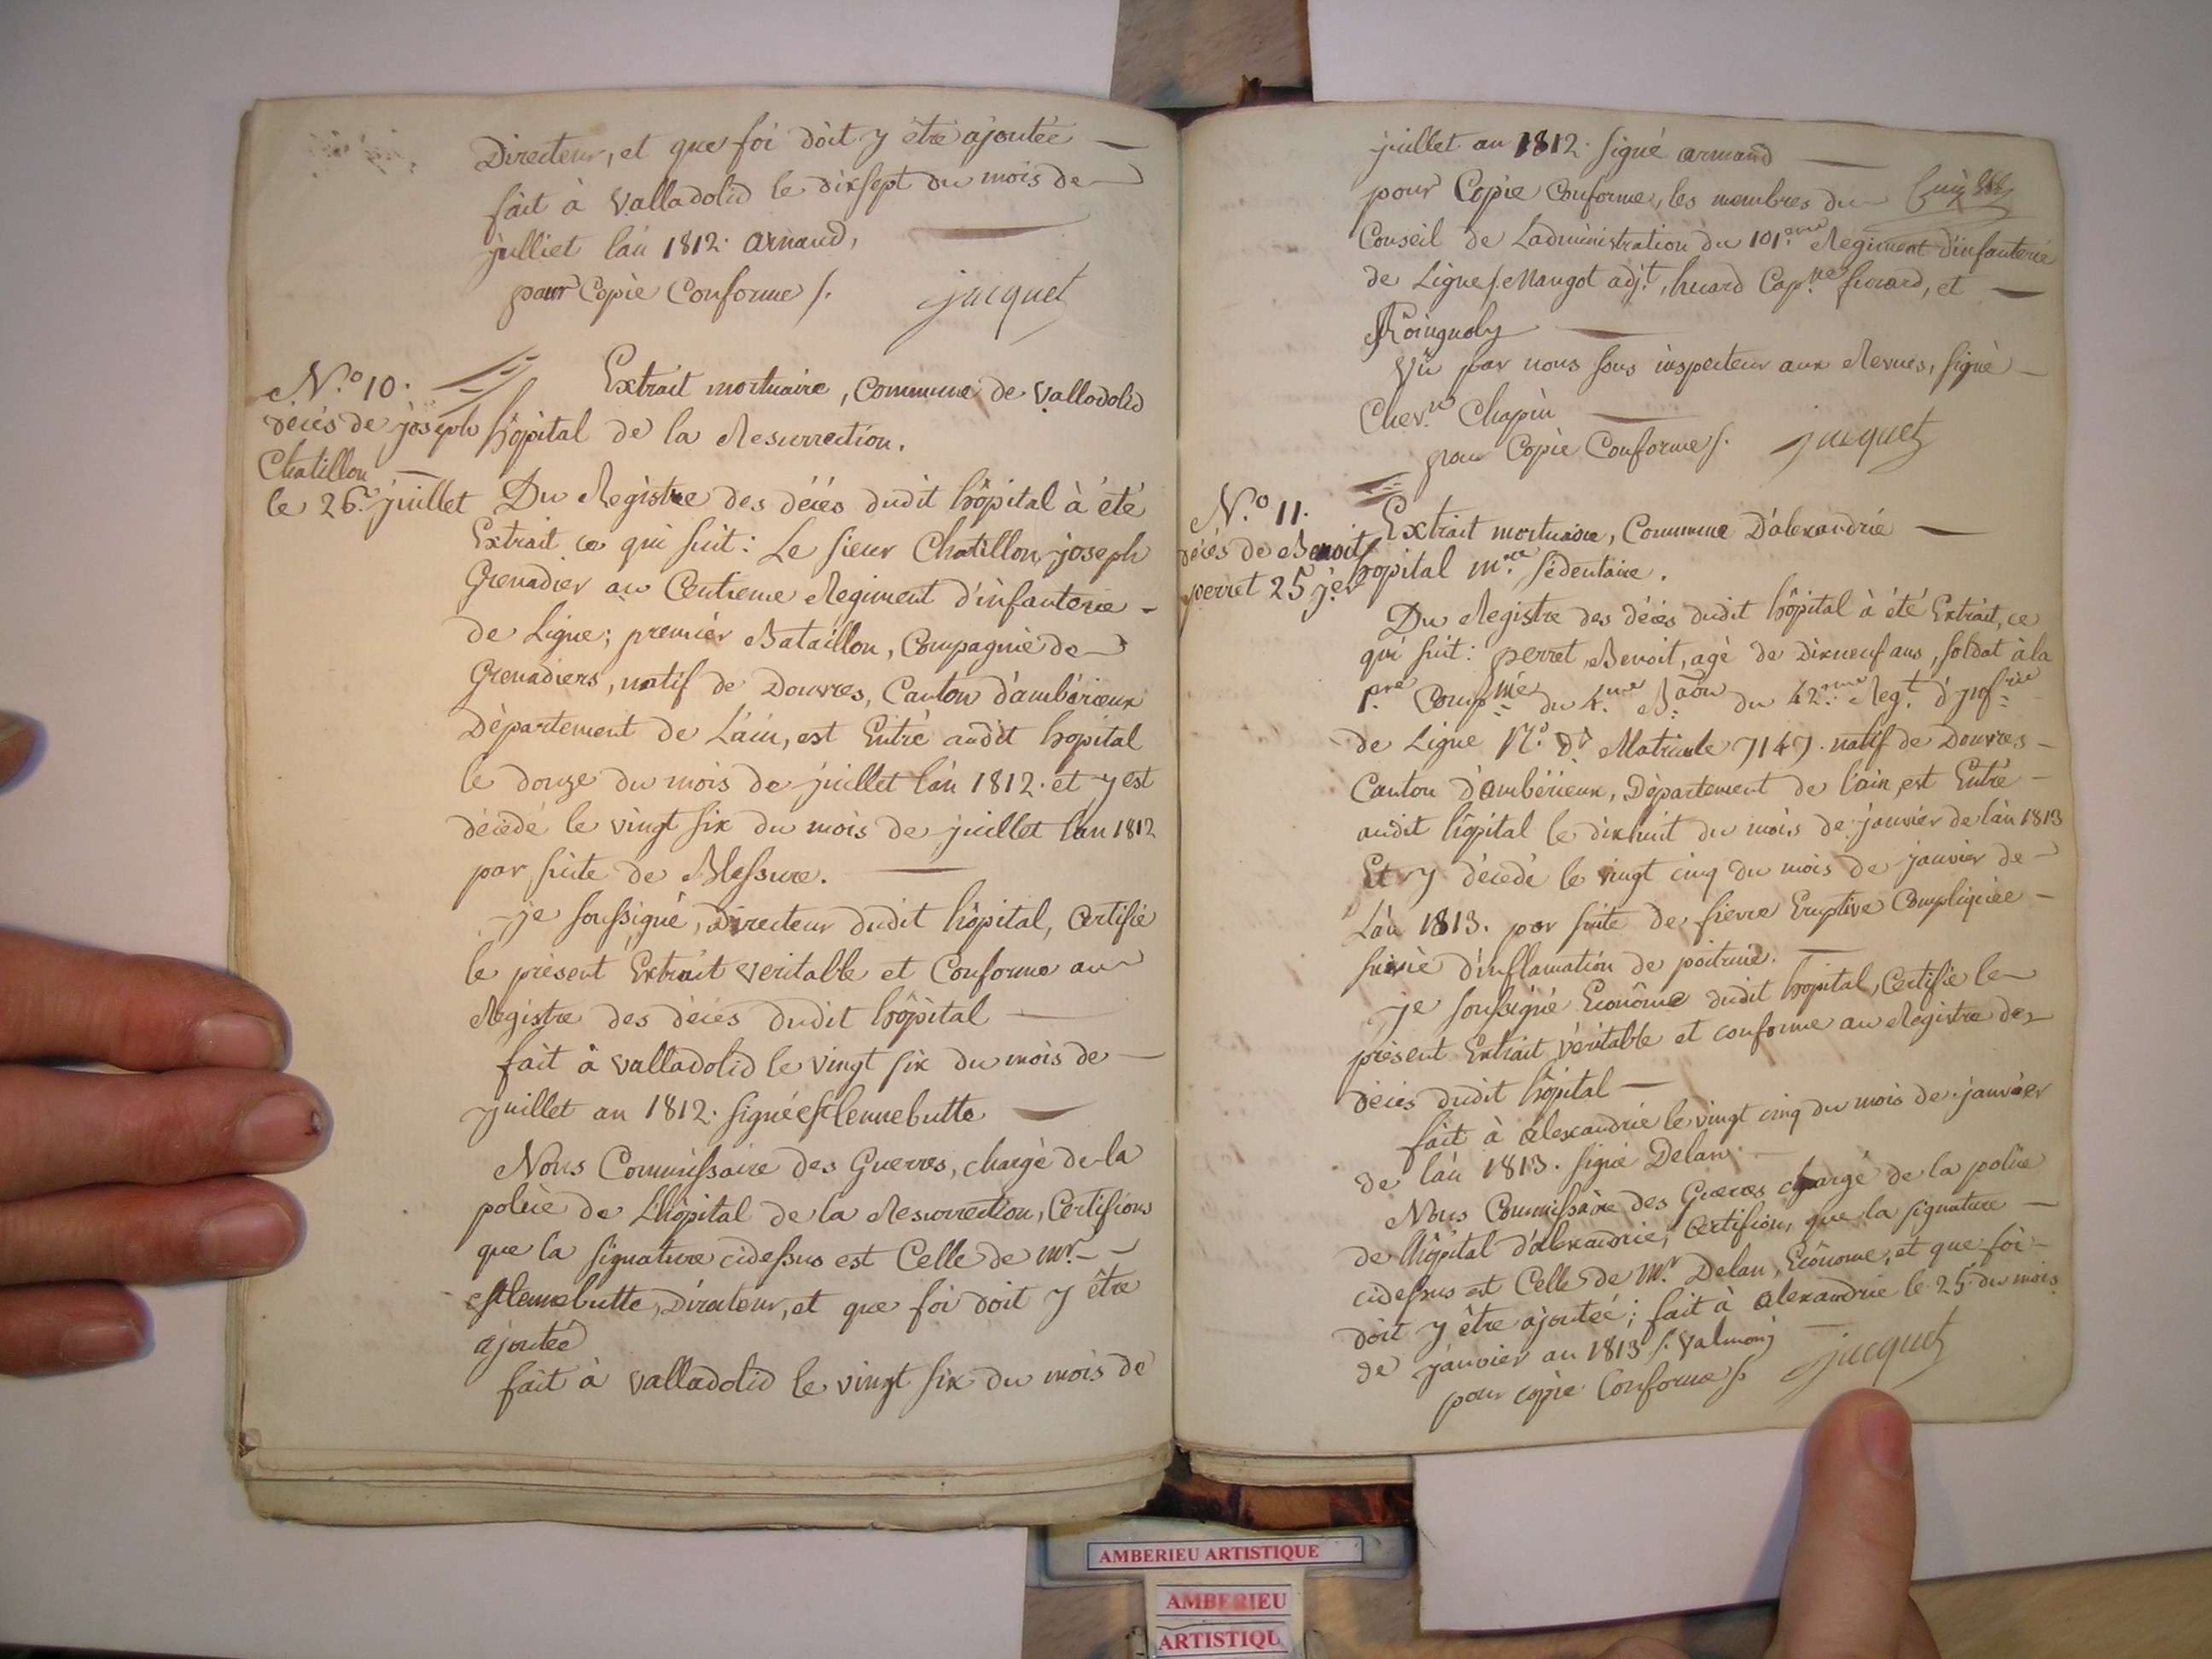 Directeur, et que foi doit y être ajoutée —
fait à Valladolid le dixsept du mois de
julliet l'an 1812. Arnaud,
pour Copie Conforme /. jacquet
N.o 10.
décés de joseph
Chatillon —
le 26. juillet
Extrait mortuaire, Commune de Valladolid
hôpital de la Resurrection.
Du Registre des décés dudit hôpital à été
Extrait ce qui suit: Le sieur Chatillon joseph
Grenadier au Centieme Regiment d'infanterie -
de Ligne; premier Bataillon, Compagnie de
Grenadiers, natif de Douvres, Canton d'ambérieux
Département de L'ain, est Entré audit hopital
le douze du mois de juillet l'an 1812. et y est
décédé le vingt six du mois de juillet l'an 1812
par suite de Blessure. —
je soussigné, Directeur dudit hôpital, Certifie
le présent Extrait veritable et Conforme au
Registre des décés dudit hôpital —
fait à Valladolid le vingt six du mois de —
juillet an 1812. signé —
Nous Commissaire des Guerres, chargé de la
police de L'hôpital de la Resurrection, Certifions
que la signature cidessus est Celle de Mr. -
Directeur, et que foi doit y être
ajoutée
fait à Valladolid le vingt six du mois de
juillet an 1812. signé armand —
pour Copie Conforme, les membres du
Conseil de L'administration du 101.eme Regiment d'infanterie
de Ligne /. Mangot adj.t, huard Cap.ne et —
Vu par nous sous inspecteur aux Revues, signé —
Chev.r Chapin —
pour Copie Conforme /. jacquet
N.o 11.
décés de Benoit
perret 25 j.er
Extrait mortuaire, Commune D'alexandrie —
hopital m.re sédentaire.
Du Registre des décés dudit hôpital à été Extrait, ce
qui suit: perret, Benoit, agé de dixneuf ans, soldat à la
1.ere Comp.nie du 4.eme B.aon du 42.eme Reg.t d'inf.rie
de Ligne N.o d. Matricule 7147. natif de Douvres -
Canton d'ambérieux, Département de l'ain, est Entré —
audit hôpital le dixhuit du mois de janvier de l'an 1813
Et y décedé le vingt cinq du mois de janvier de
L'an 1813. par suite de fievre Eruptive Compliquée —
suivie d'inflamation de poitrine. —
je soussigné Econôme dudit hopital, Certifie le
présent Extrait véritable et conforme au Registre des
décés dudit hôpital —
fait à alexandrie le vingt cinq du mois de janvier
de l'an 1813. signé Delan. —
Nous Commissaire des Guerres chargé de la police
de l'hôpital d'alexandrie, Certifions, que la signature —
cidessus est Celle de Mr. Delan, Econome, et que foi -
doit y être ajoutée; fait à alexandrie le 25 du mois
de janvier an 1813 /. Valmont —
pour copie Conforme /. jacquet
AMBERIEU ARTISTIQUE
AMBERIEU
ARTISTIQU